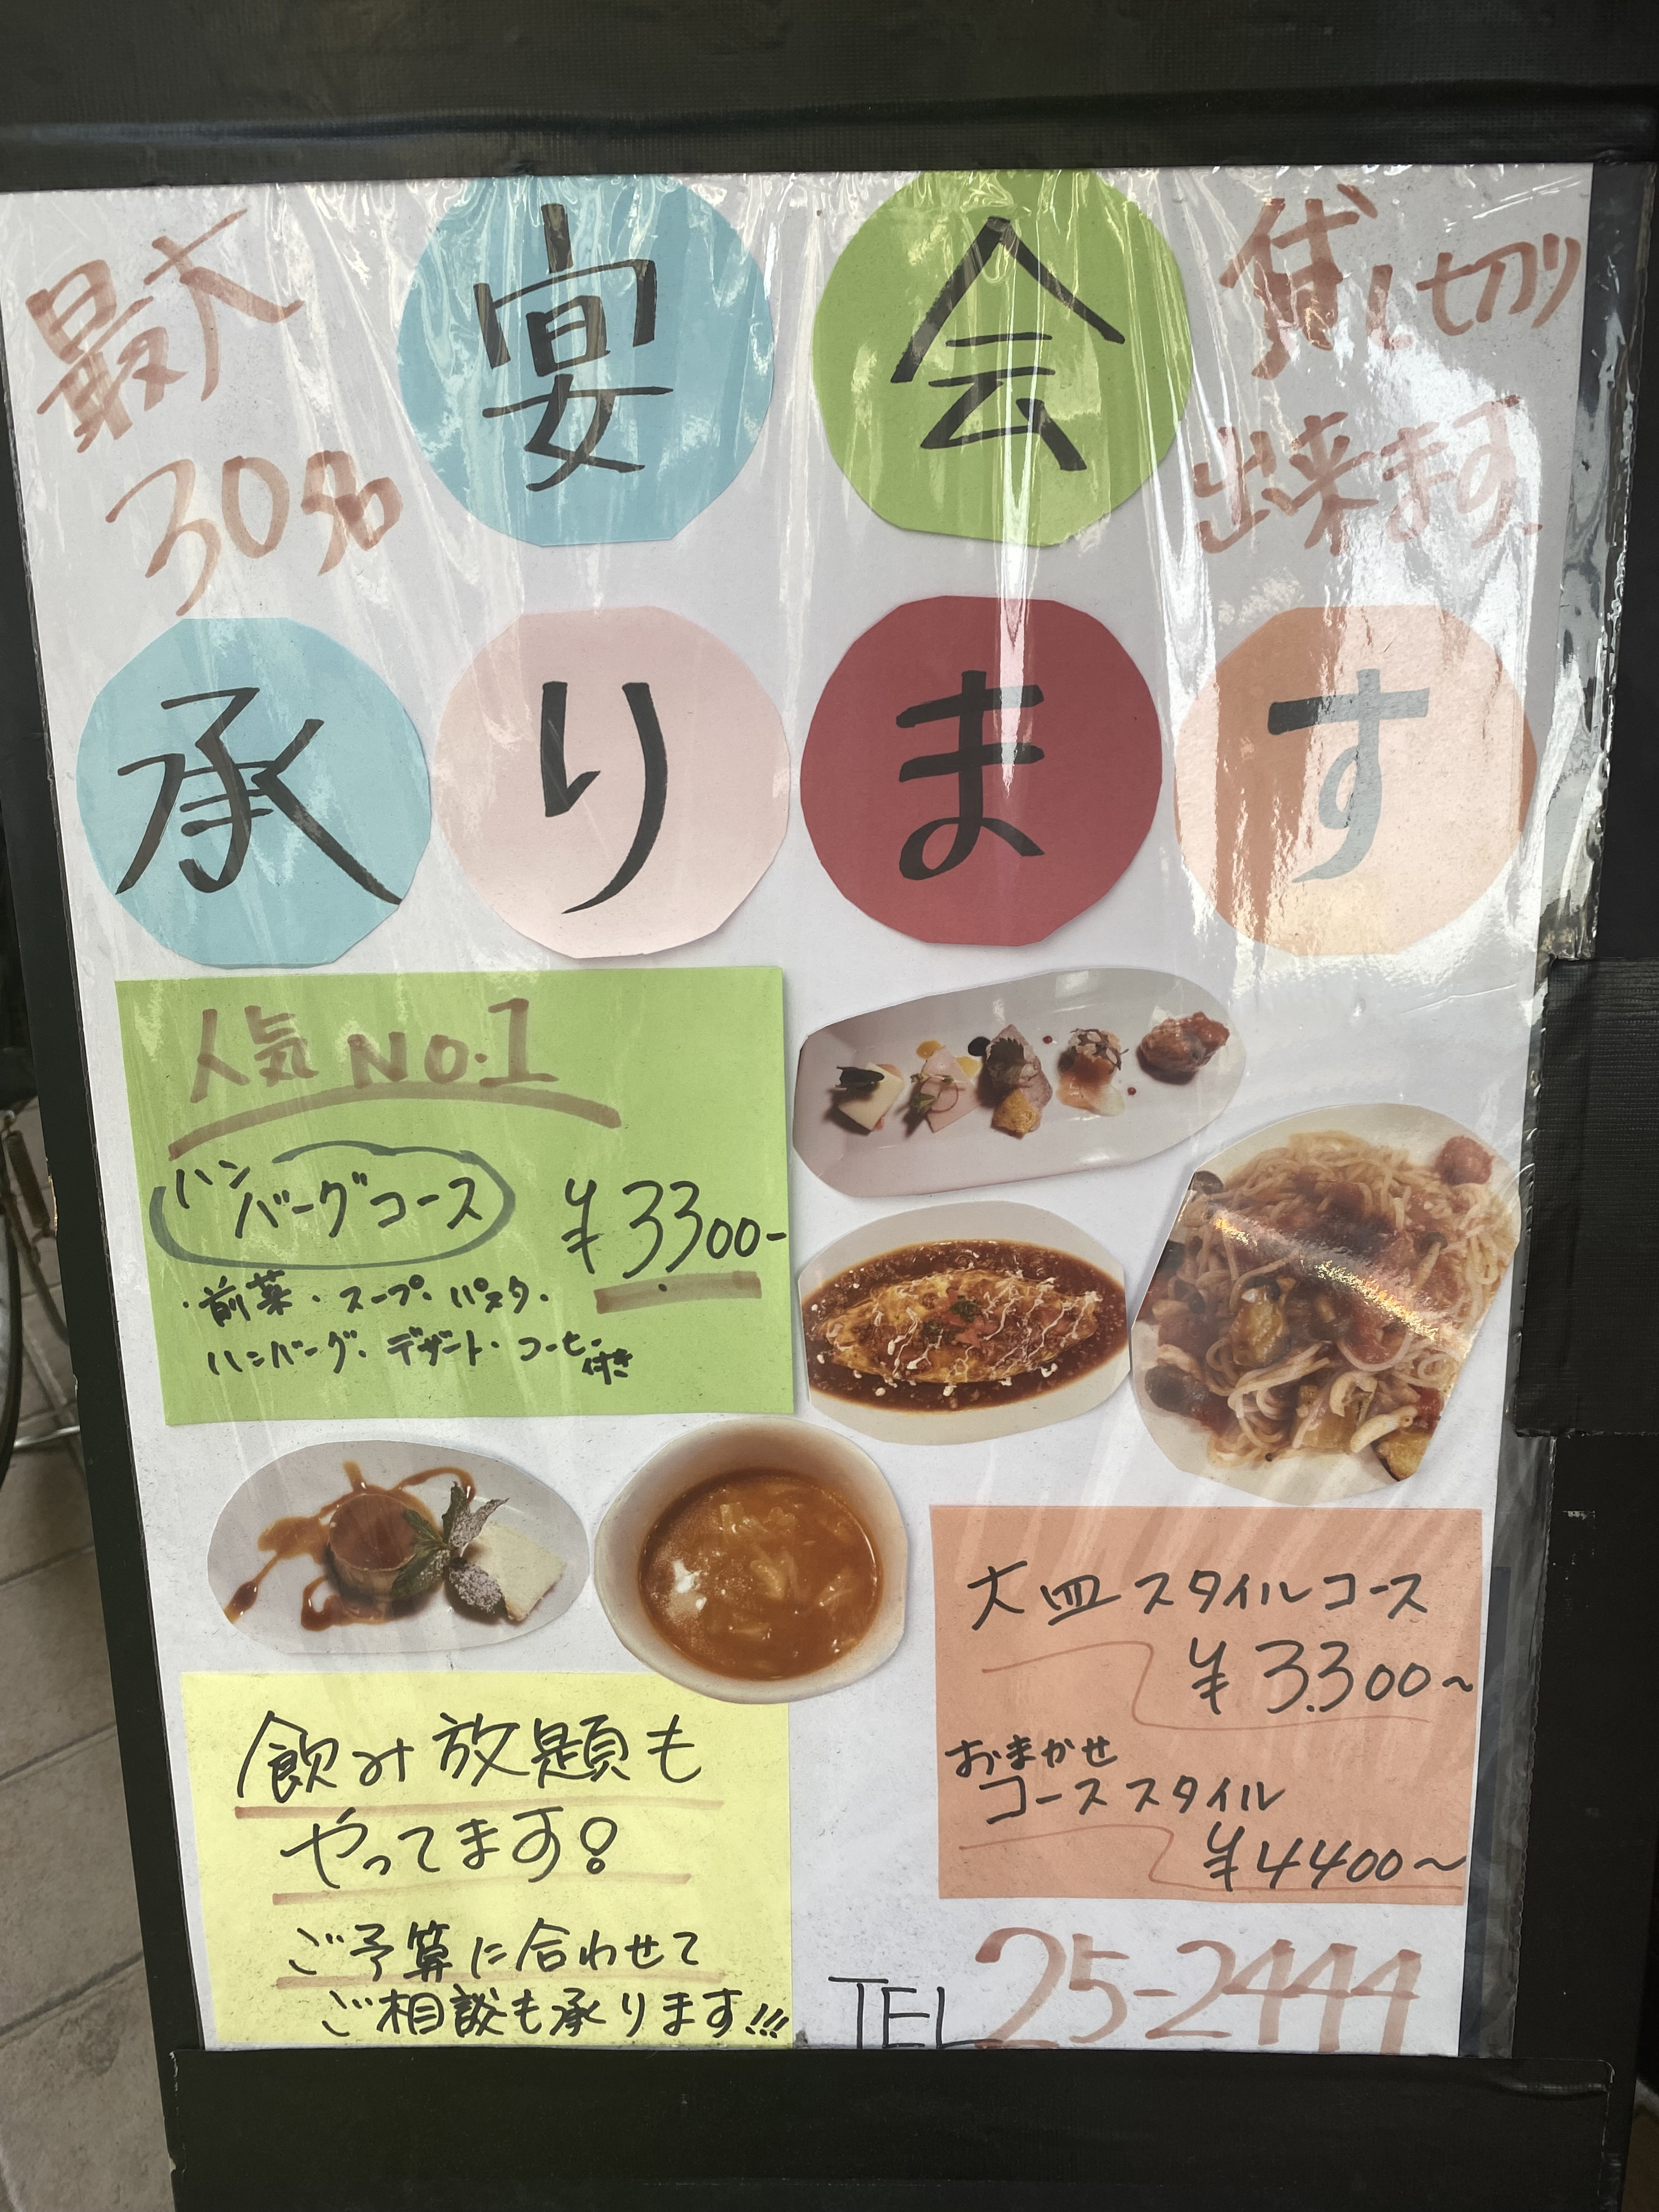 最大
30名
宴会
貸し切り
出来ます。
承ります
人気 NO.1
ハンバーグコース
¥3300-
・前菜・スープ・パスタ・
ハンバーグ・デザート・コーヒー付き
大皿スタイルコース
¥3.300~
おまかせ
コーススタイル
¥4400~
飲み放題も
やってます!
ご予算に合わせて
ご相談も承ります!!!
TEL 25-2444